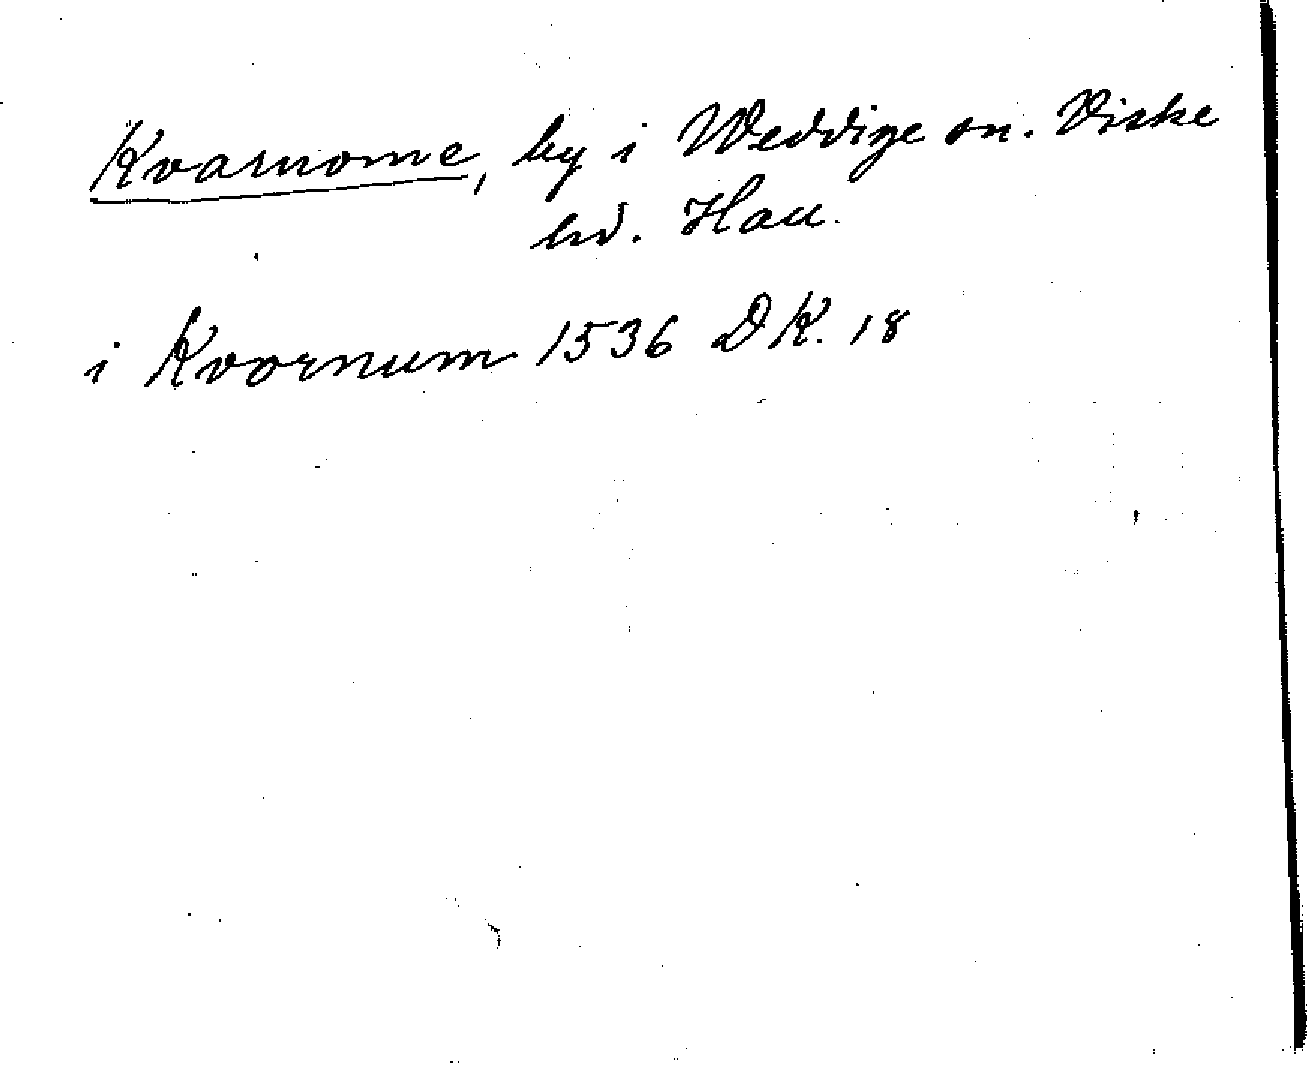 Kvarnome, by i Weddige sn. Viske
hd. Hall.
i Kvornum 1536 DK. 18